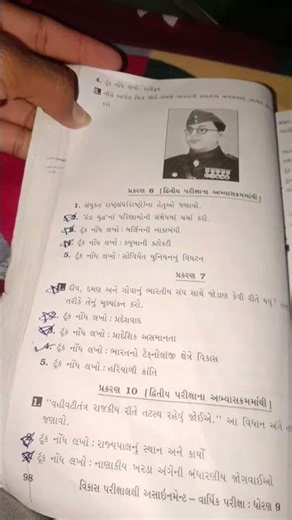 4. ટૂંક નોંધ લખો :
નીચે આપેલ ચિત્ર
કરો.
પ્રકરણ 6 [દ્વિતીય પરીક્ષાના અભ્યાસક્રમમાંથી]
1. સંયુક્ત રાષ્ટ્રસંઘ(રાષ્ટ્રો)ના હેતુઓ જણાવો.
2. 'ઠંડા યુદ્ધ'નાં પરિણામોની સંક્ષેપમાં ચર્ચા કરો.
ટૂંક નોંધ લખો : બર્લિનની નાકાબંધી
ટૂંક નોંધ લખો : ક્યુબાની કટોકટી
5. ટૂંક નોંધ લખો : સોવિયેત યુનિયનનું વિઘટન
પ્રકરણ 7
દીવ, દમણ અને ગોવાનું ભારતીય સંઘ સાથે જોડાણ કેવી રીતે થયું?
તરીકે તેનું મૂલ્યાંકન કરો.
2. ટૂંક નોંધ લખો : પ્રદેશવાદ
ટૂંક નોંધ લખો : પ્રાદેશિક અસમાનતા
4. ટૂંક નોંધ લખો : ભારતનો ટેક્નોલૉજી ક્ષેત્રે વિકાસ
5. ટૂંક નોંધ લખો : હરિયાળી ક્રાંતિ
પ્રકરણ 10 [દ્વિતીય પરીક્ષાના અભ્યાસક્રમમાંથી]
1. "વહીવટીતંત્ર રાજકીય રીતે તટસ્થ રહેવું જોઈએ." આ વિધાન અંગે
જણાવો.
ટૂંક નોંધ લખો : રાજ્યપાલનું સ્થાન અને કાર્યો
ટૂંક નોંધ લખો : નાણાકીય ખરડા અંગેની બંધારણીય જોગવાઈઓ
98
વિકાસ પરીક્ષાલક્ષી અસાઇનમેન્ટ – વાર્ષિક પરીક્ષા : ધોરણ 9